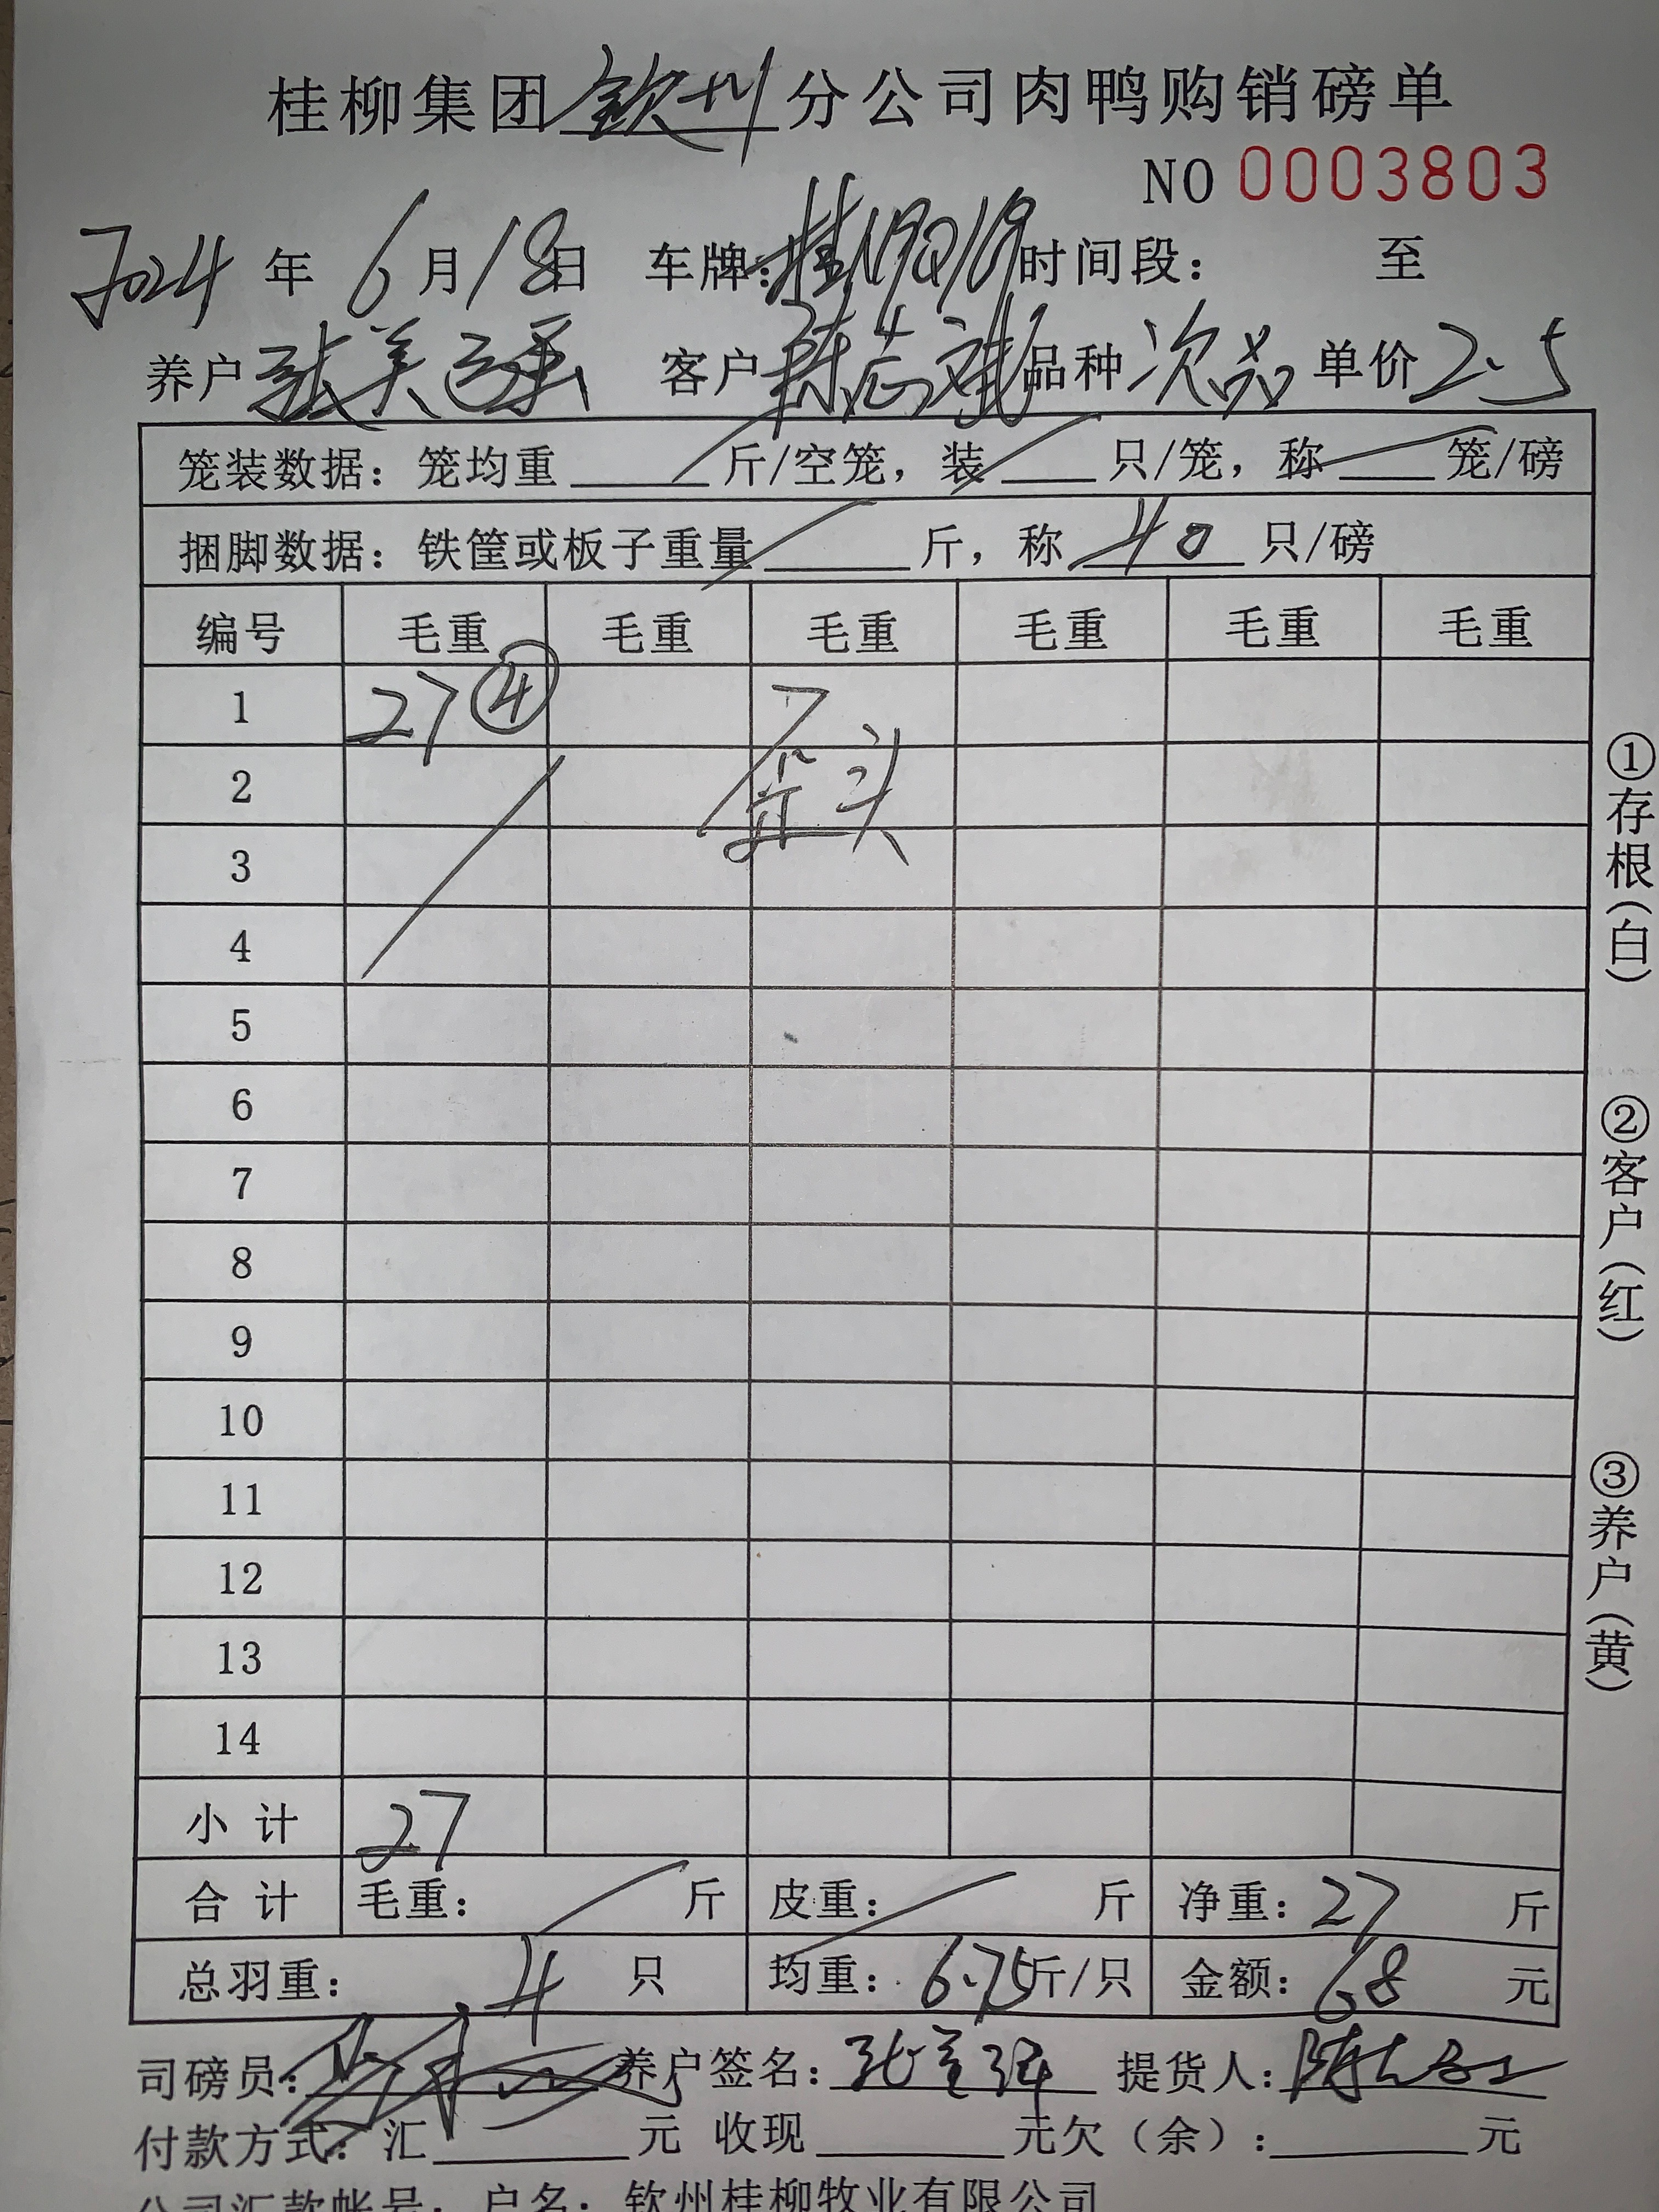 桂柳集团钦州分公司肉鸭购销磅单
NO 0003803
2024年6月18日 车牌:桂N9Q169时间段: 至
养户张美强 客户陈志斌品种次品单价2.5
笼装数据:笼均重 斤/空笼,装 只/笼,称 笼/磅
捆脚数据:铁筐或板子重量 斤,称40只/磅
编号 毛重 毛重 毛重 毛重 毛重 毛重
1 27④
2 头
3
4
5
6
7
8
9
10
11
12
13
14
小计 27
合计 毛重: 斤 皮重: 斤 净重:27斤
总羽重:4只 均重:6.75斤/只 金额:68元
司磅员: 养户签名:张美强 提货人:
付款方式:汇 元 收现 元欠(余): 元
公司汇款帐号:户名:钦州桂柳牧业有限公司
①存根(白)
②客户(红)
③养户(黄)